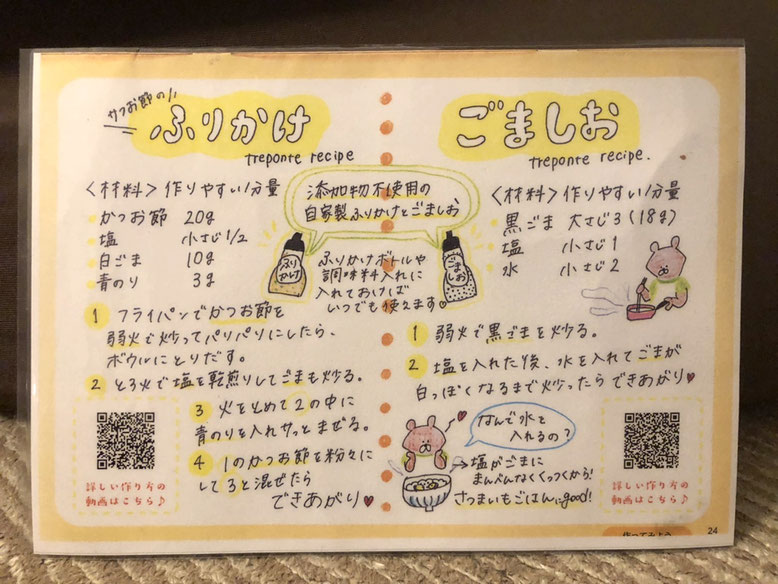 かつお節の!!
ふりかけ
treponte recipe
〈材料〉作りやすい分量
かつお節 20g
塩 小さじ1/2
白ごま 10g
青のり 3g
添加物不使用の
自家製ふりかけとごましお
ふりかけ
ごましお
ふりかけボトルや
調味料入れに
入れておけば
いつでも使えます♥
1 フライパンでかつお節を
弱火で炒ってパリパリにしたら、
ボウルにとりだす。
2 とろ火で塩を乾煎りしてごまも炒る。
3 火を止めて2の中に
青のりを入れサッとまぜる。
4 1のかつお節を粉々に
して3と混ぜたら
できあがり♥
詳しい作り方の
動画はこちら♪
ごましお
treponte recipe.
〈材料〉作りやすい分量
黒ごま 大さじ3(18g)
塩 小さじ1
水 小さじ2
1 弱火で黒ごまを炒る。
2 塩を入れた後、水を入れてごまが
白っぽくなるまで炒ったらできあがり♥
なんで水を
入れるの?
→塩がごまに
まんべんなくくっつくから!
さつまいもごはんにgood!
詳しい作り方の
動画はこちら♪
作ってみよう
24